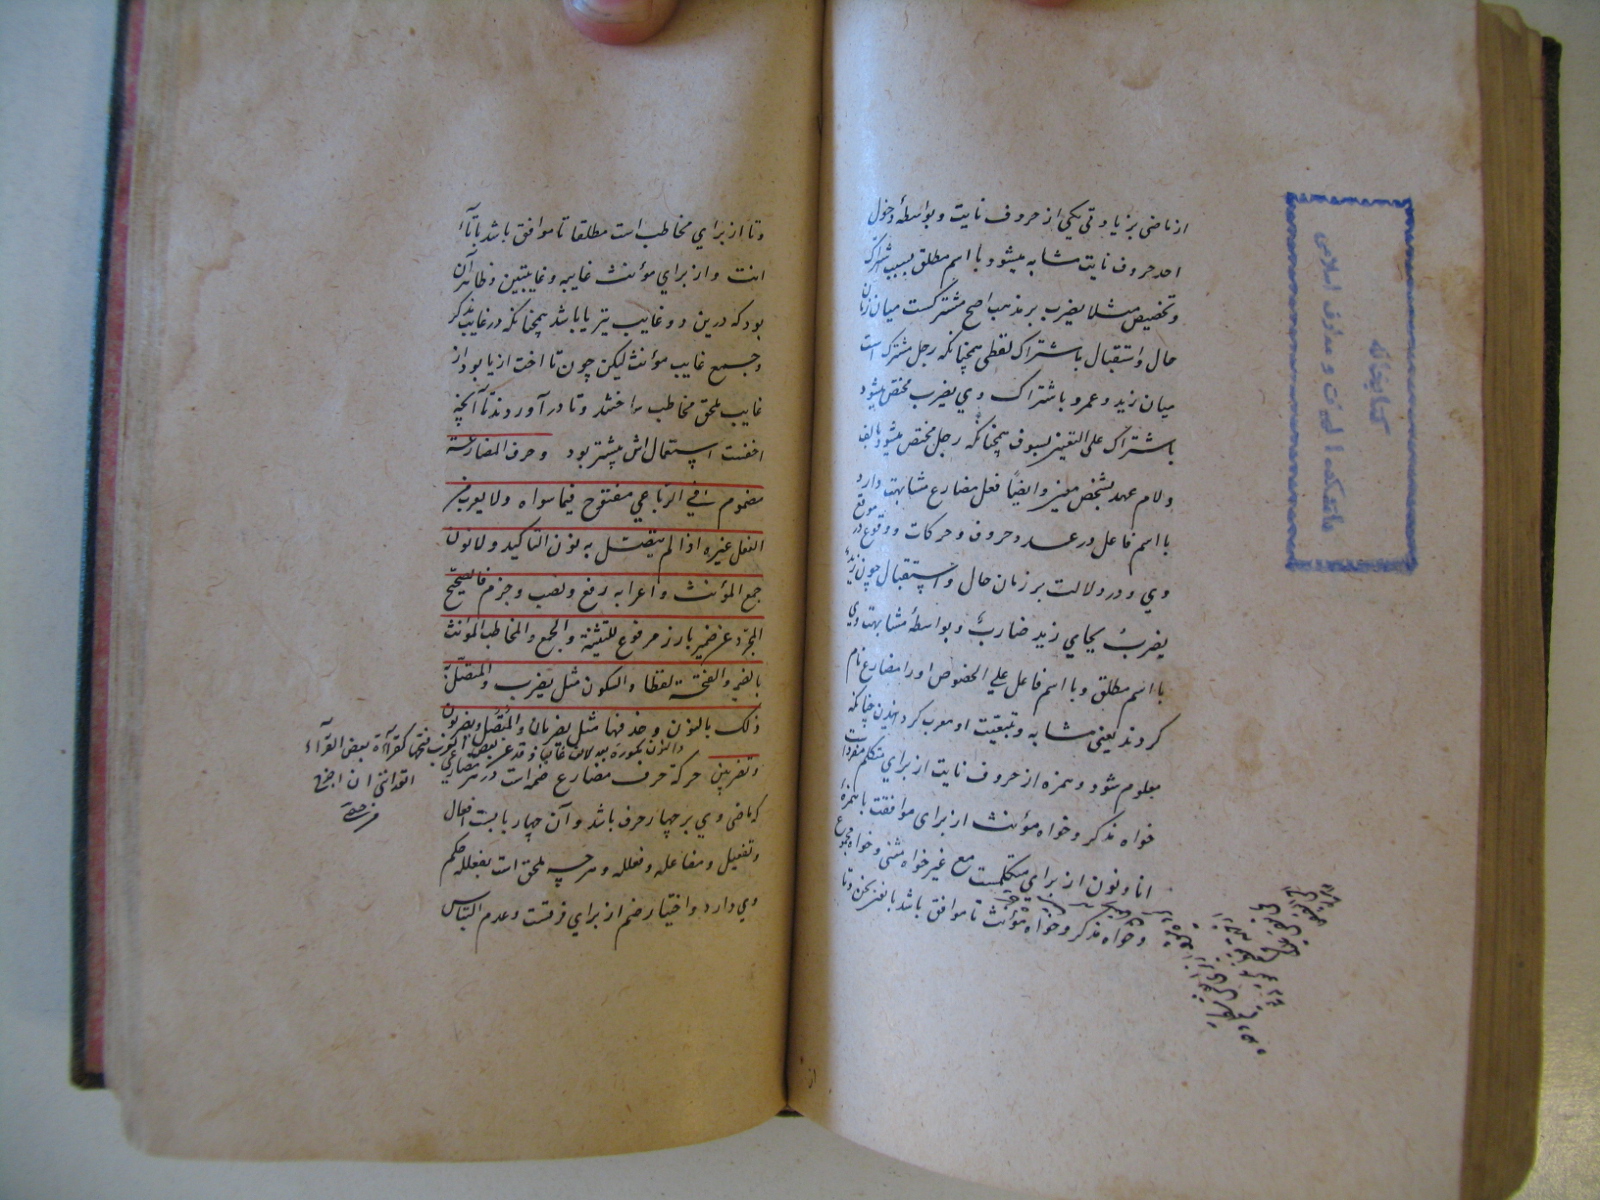 از ماضی بزیادتی یکی از حروف نایت و بواسطهٔ دخول
احد حروف نایت مشابه میشود با اسم مطلق بسبب اشتراک
و تخصیص مثلا یضرب بر مذهب اصح مشترکست میان زمان
حال و استقبال باشتراک لفظی همچنانکه رجل مشترک است
میان زید و عمرو باشتراک وی یضرب مختص میشود
باشتراک علی التعین بسوف همچنانکه رجل مختص میشود بالف
و لام عهد بشخص معین و ایضا فعل مضارع مشابهت دارد
با اسم فاعل در عدد حروف و حرکات و وقوع در موقع
وی و در دلالت بر زمان حال و استقبال چون زید
یضرب بجای زید ضارب و بواسطهٔ مشابهت وی
با اسم مطلق و با اسم فاعل علی الخصوص او را مضارع نام
کردند یعنی مشابه و بتبعیت او معرب کردند چنانکه
معلوم شود و همزه از حروف نایت از برای متکلم مفردات
خواه مذکر و خواه مؤنث از برای موافقت با همزهٔ
انا و نون از برای متکلمست مع غیر خواه مثنی و خواه مجموع
و خواه مذکر و خواه مؤنث تا موافق باشد با نون نحن و تا
کتابخانه
دانشکده الهیات و معارف اسلامی
و تا از برای مخاطب است مطلقا تا موافق باشد با تاآ
انت و از برای مؤنث غایبه و غایبتین و ظاهر آن
بود که درین دو غایب نیز یا باشد همچنانکه در غایب مذکر
و جمع غایب مؤنث لیکن چون تا اخت از یا بود از
غایب ملحق مخاطب ساختند و تا در آوردند تا آنچه
اخفست استعمال اش بیشتر بود و حرف المضارعة
مضموم فی الرباعی مفتوح فیما سواه و لا یعرب من
الفعل غیره اذا لم یتصل به نون التاکید و لا نون
جمع المؤنث و اعرابه رفع و نصب و جزم فالصحیح
المجرد عن ضمیر بارز مرفوع للتثنیة و الجمع و المخاطب المؤنث
بالضمة و الفتحة لفظا و السکون مثل یضرب و المتصل به
ذلک بالنون و حذفها مثل یضربان و یضربون
و تضربین حرکة حرف مضارع ضمه است در مضارعی
که ماضی وی بر چهار حرف باشد و آن چهار بابست افعال
و تفعیل و مفاعله و فعلله و هر چه ملحق است بفعلله حکم
وی دارد و اختیار ضم از برای فرقست و عدم التباس
بعض القراء
اتعداننی ان اخرج